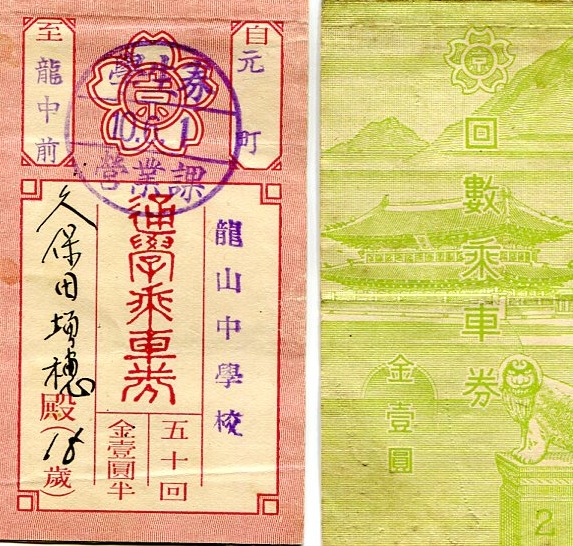 自 元町
至 龍中前
京
學生券
10.5.1
營業課
龍山中學校
通學乘車券
五十回
金壹圓半
久保田 穗 殿(18歲)
京
回數乘車券
金壹圓
2